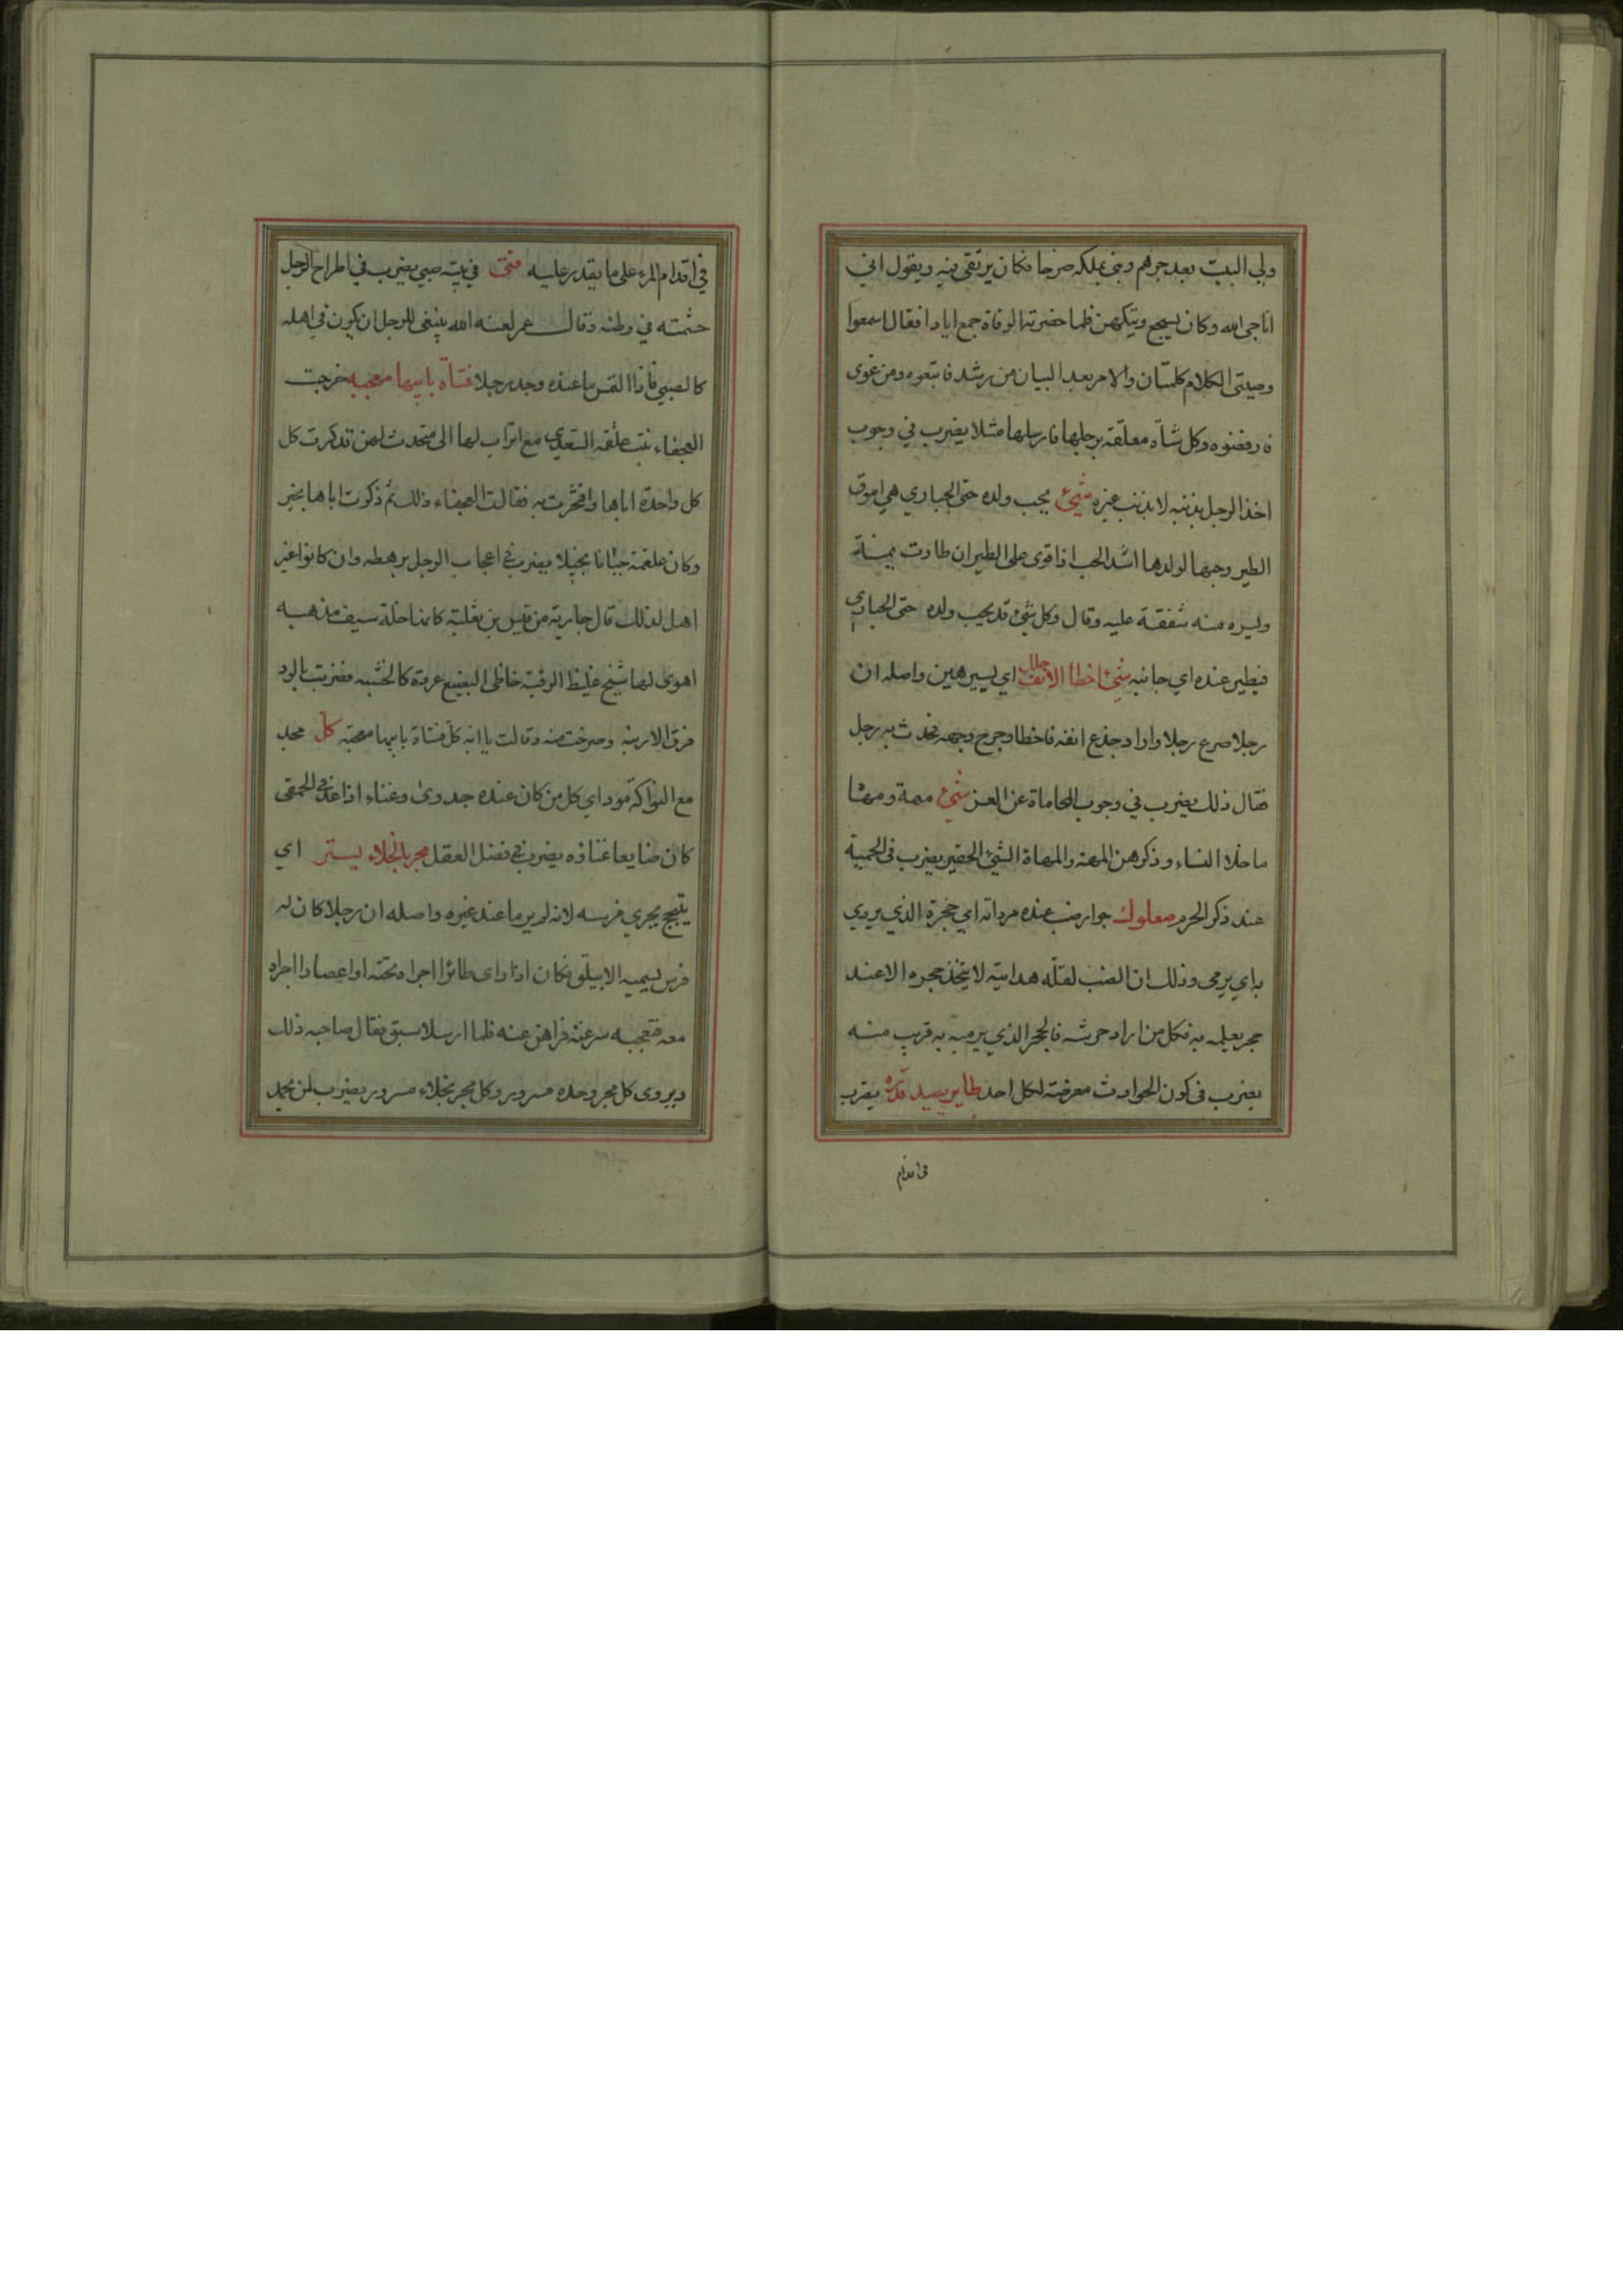 ولى البيت بعد جرهم وبنى بملكه صرحا فكان يرتقى فيه ويقول انى
اناجى الله وكان يسجع ويتكهن فلما حضرته الوفاة جمع ايادا فقال اسمعوا
وصيتى الكلام كلمتان والامر بعد البيان من رشد فاتبعوه ومن غوى
فارفضوه وكل شاة معلقة برجلها فارسلها مثلا يضرب في وجوب
اخذ الرجل بذنبه لا بذنب غيره شيئ يحب ولده حتى الحبارى هي اموق
الطير وحبها لولدها اشد الحب اذا قوى على الطيران طارت يمنة
ويسره منه شفقة عليه وقال وكل شيئ قد يحب ولده حتى الحبارى
فيطير عنده اي جانبه شيئ اخطا الانف جلل اي يسير هين واصله ان
رجلا صرع رجلا واراد جذع انفه فاخطا وجرح وجهه فحدث به رجل
فقال ذلك يضرب في وجوب المحاماة عن العز شيئ مهة ومهاة
ما خلا النساء وذكرهن المهة والمهاة الشيئ الحقير يضرب في الحمية
عند ذكر الحرم صعلوك جوار ضب عنده مرداته اي حجرة الذي يردي
به اي يرمى وذلك ان الضب لقلة هدايته لا يتخذ جحره الا عند
حجر يعلمه به فكل من اراد حرشه فالحجر الذي يرميه به قريب منه
يضرب في كون الحوادث معرضة لكل احد طاير يصيد قدره يضرب
في اقدام
في اقدام المرء على ما يقدر عليه فتى في بيته صبي يضرب في اطراح الرجل
حشمته في وطنه وقال عمر لعنه الله ينبغى للرجل ان يكون في اهله
كالصبي فاذا التمس ما عنده وجد رجلا فتاة بابيها معجبه خرجت
العجفاء بنت علقمه السعدي مع اتراب لها الى متحدث لهن تذكرت كل
كل واحدة اباها وافتخرت به فقالت العجفاء ذلك ثم ذكرت اباها بخير
وكان علقمة جبانا بخيلا يضرب في اعجاب الرجل برهطه وان كانوا غير
اهل لذلك قال جارية من قيس بن ثعلبة كانها خلة سيف مذهبه
اهوى لها شيخ غليظ الرقبة خاظى البضيع عردة كالخشبه فضربت بالود
فرق الارنبه وصرخت منه وقالت يا ابه كل فتاة بابيها معجبة كل مجد
مع النواكة مودا اي كل من كان عنده جدوى وغناء اذا عد في الحمقى
كان ضايعا غناؤه يضرب في فضل العقل مجر بالخلاء يستر اي
يتبجح بجرى فرسه لانه لم ير ما عند غيره واصله ان رجلا كان له
فرس يسميه الابيلق فكان اذا راى طائرا اجراه تحته او اعصارا اجراه
معه فتعجبه سرعته فراهن عنه فلما ارسلا سبق فقال صاحبه ذلك
ويروى كل مجر وحده مسرور وكل مجر بخلاء مسرور يضرب لمن يحمد